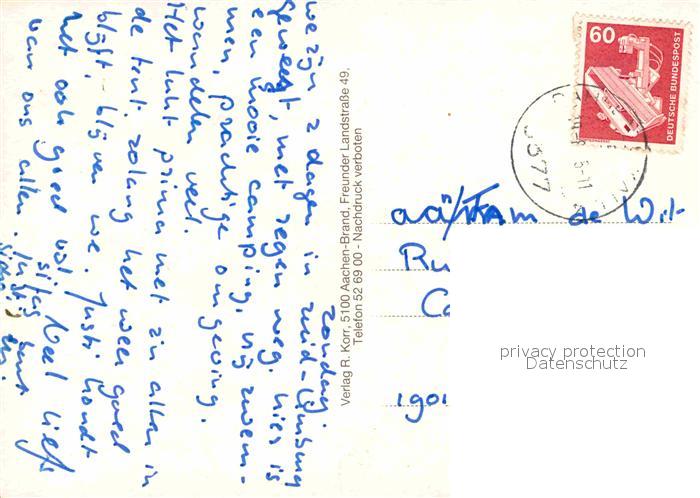 zondag.
we zijn 2 dagen in zuid-Limburg
geweest, met regen weg. hier is
een mooie camping, vrij zwem-
men, prachtige omgeving.
wandelen veel.
Het lukt prima met z'n allen in
de tent. zolang het weer goed
blijft, blijven we. Justi houdt
het ook goed vol. Veel liefs
van ons allen.
Verlag R. Korr, 5100 Aachen-Brand, Freunder Landstraße 49,
Telefon 52 69 00 - Nachdruck verboten
60
DEUTSCHE BUNDESPOST
5377
fam de Wit
Ru
Ca
privacy protection
Datenschutz